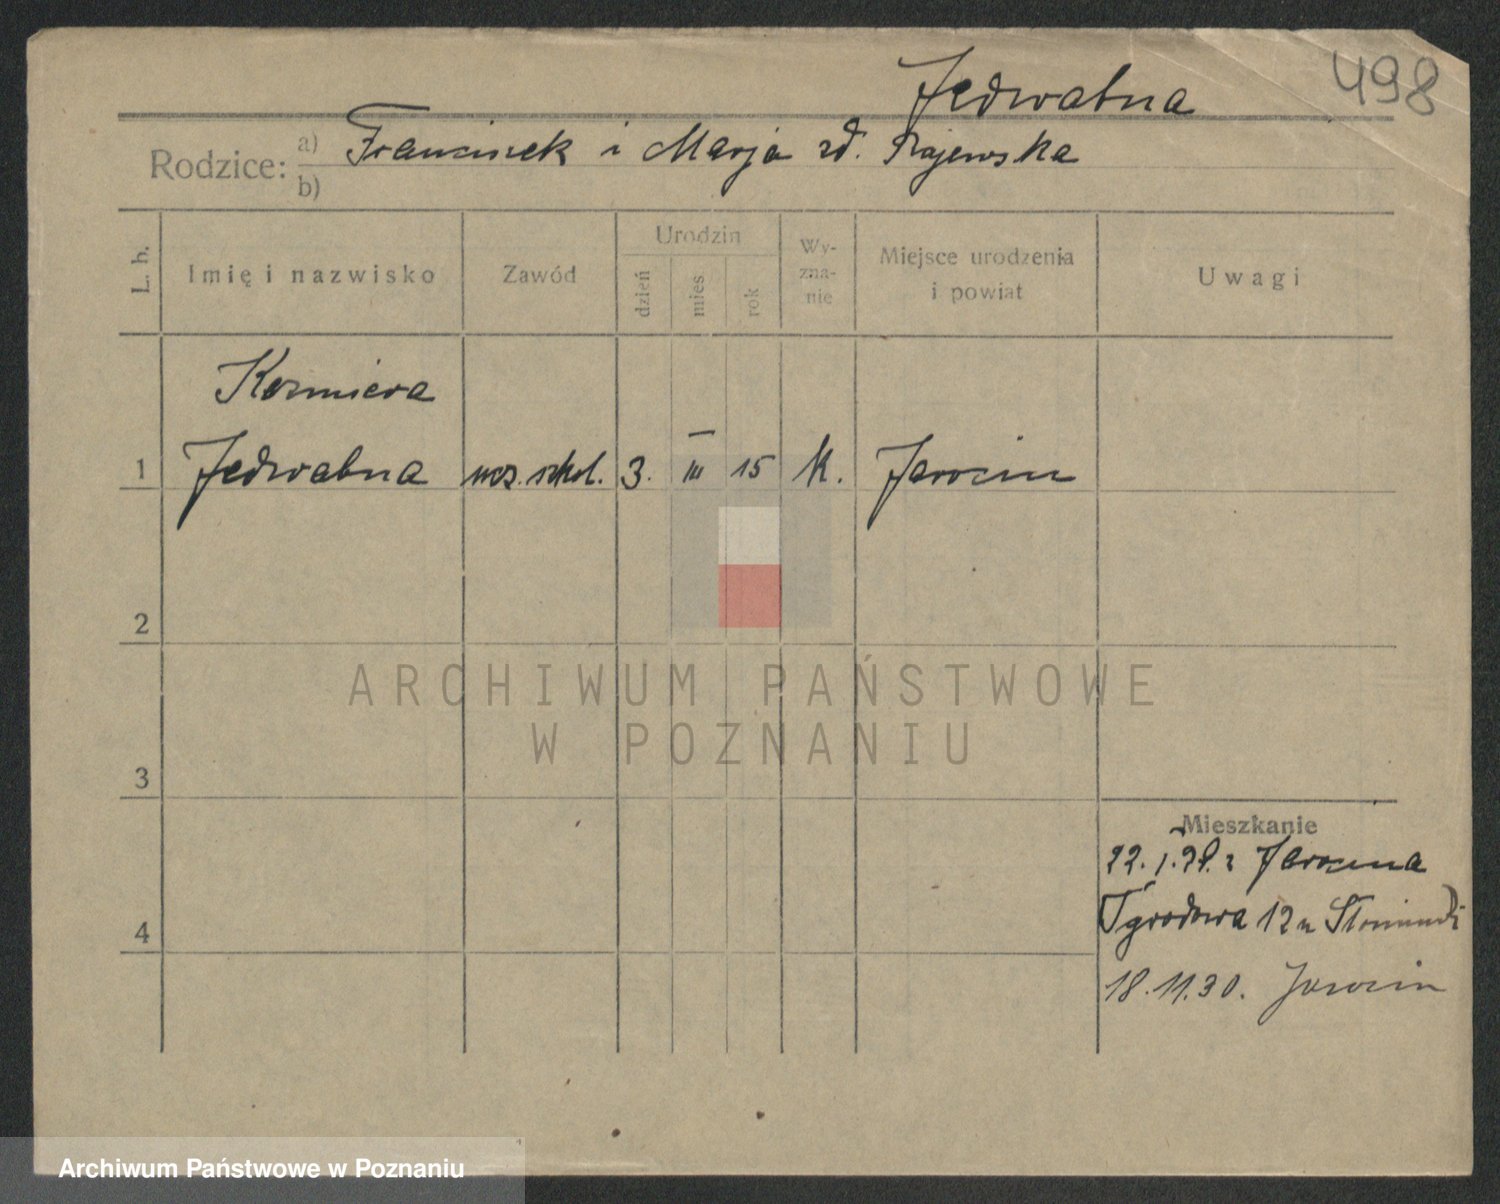 498
Jedwabna
Rodzice:
a) Franciszek i Marja zd. Rajewska
b)
L. b.
Imię i nazwisko
Zawód
Urodzin
dzień
mies
rok
Wy-
zna-
nie
Miejsce urodzenia
i powiat
Uwagi
Kazmiera
1 Jedwabna ucz. szkol. 3. III 15 k. Jarocin
2
3
4
Mieszkanie
22. I. 29. z Jarocina
Ogrodowa 12 u
18.11.30. Jarocin
ARCHIWUM PAŃSTWOWE
W POZNANIU
Archiwum Państwowe w Poznaniu